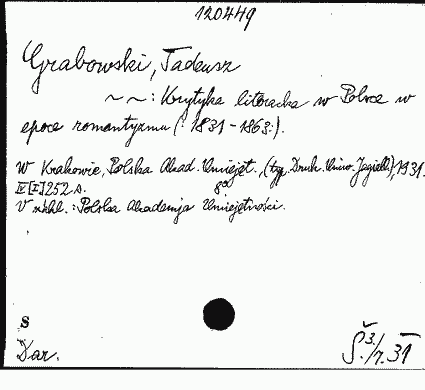 120449
Grabowski, Tadeusz
~ ~: Krytyka literacka w Polsce w
epoce romantyzmu (: 1831-1863:).
W Krakowie, Polska Akad. Umiejęt., (typ. Druk. Uniw. Jagiell.), 1931.
IV[I]252 s. 8°
V nakl.: Polska Akademja Umiejętności.
S
Dar.
31